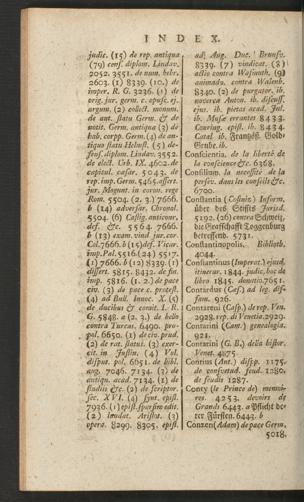 INDEX.
judic. (15) de rep. antiqua
(79) cens. diplom. Lindav.
2052. 3551. de num. hebr.
2603. (1) 8339. (10.) de
imper. R. G. 3236. (1) de
orig. jur. germ. c. opusc. ej.
argum. (2) collect. monum.
de ant. statu Germ. &
notit. Germ. antiqua (3) de
hab. corpp. Germ. (4) de antiquo
statu Helmst. (5)
fens. diplom. Lindav. 3552.
de elect. Urb. IX. 4602. de
capitul. caesar. 5043. de
rep. imp. Germ. 5465. assert.
jur. Mogunt. in coron. rege
Rom. 5504. (2. 3.) 7666.
b (14) adversar. Coronat.
5504. (6) Castig. anticour.
def. &c. 5564. 7666.
b (13) exam. vind. jur. cor.
Col. 7666. b (15) def. Vicar.
imp. Pal. 5516 (24) 5517.
(1) 7666. b (12) 8339. (1)
dissert. 5815. 8432. de fin.
imp. 5816. (1. 2.) de pace
civ. (3) de pace c. protest.
(4) ad Bull. Innoc. X. (5)
de ducibus & comit. I. R.
G. 5848. a (2. 3.) de bello
contra Turcas. 6490. propol.
6650. (1) de civ. prud.
(2) de rat. status. (3) exercit.
in Justin. (4) Vol.
disput. pol. 6651. de bibl.
aug. 7046. 7134. (3) de
antiqu. acad. 7134. (1) de
studiis &c. (2) de scriptor.
sec. XVI. (4) synt. epist.
7936. (1) epist. sparsim edit.
(2) laudat. Aristot. (3)
opera. 8299. 8305. epist.
ad Aug. Duc. Brunsv.
8339. (7) vindicat. (8)
actio contra Wasmuth. (9)
animadv. contra Walenb.
8340. (2) de purgator. ib.
noverca Anton. ib. discuss.
ejus. ib. pietas acad. Jul.
ib. Musae errantes 8433
Conring. epist. ib. 8434.
Catal. ib. Franzöß. Gold
Grube. ib.
Conscientia. de la liberté de
la conscience &c. 6368.
Consilium. la necessité de la
persev. dans les conseils &c.
6700.
Constantia (Casinir) Inform.
über des Stiffts Jurisd.
5192. (26) contra Schweitz,
die Graffschafft Toggenburg
betreffend. 5731.
Constantinopolis. Biblioth.
4044.
Constantinus (Imperat.) ejusd.
itinerar. 1844. judic. hoc de
libro 1845. donatio. 7651.
Contardus (Casp.) ad leg. diffam.
926.
Contareni (Casp.) de rep. Ven.
2928. rep. di Venetia. 2929.
Contarini (Cant.) genealogia.
921.
Contarini (G. B.) della histor.
Venet. 4875.
Contius (Ant.) disp. 1175.
de consvetud. feud. 1280.
de feudis 1287.
Conty (le Prince de) memoires
4253. devoirs de
Grands 6443. a Pflicht derer
Fürsten. 6443. b
Conzen (Adam) de pace Germ.
5018.